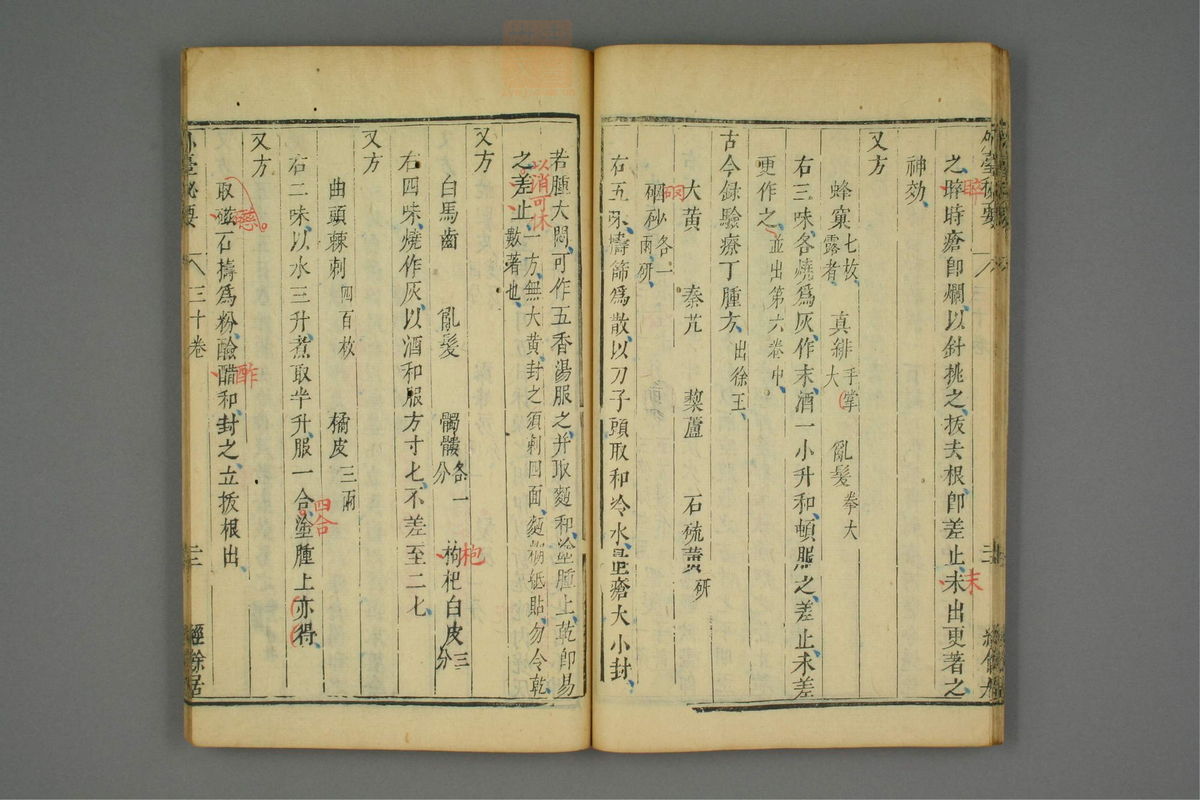 外臺秘要
之晬時瘡卽爛以針挑之拔去根卽差止未出更著之
晬
末
神効
又方
蜂窠七枚露者 真緋手掌大 亂髮拳大
右三味各燒爲灰作末酒一小升和頓服之差止未差
更作之並出第六卷中
古今録驗療丁腫方出徐王
大黃 秦艽 藜蘆 石硫黃研
硇砂各一兩研
右五味擣篩爲散以刀子頭取和冷水量瘡大小封
若腫大悶可作五香湯服之并取麵和塗腫上乾卽易
以消可休
之差止一方無大黃封之須刺四面麵糊紙貼勿令乾
數著也
又方
白馬齒 亂髮 髑髏各一分 枸杞白皮三分
枹
右四味燒作灰以酒和服方寸七不差至二七
又方
曲頭棘刺四百枚 橘皮三兩
右二味以水三升煮取半升服一合塗腫上亦得
四合
又方
取磁石擣爲粉醶醋和封之立拔根出
酢
外臺秘要 三十卷 二 經餘居